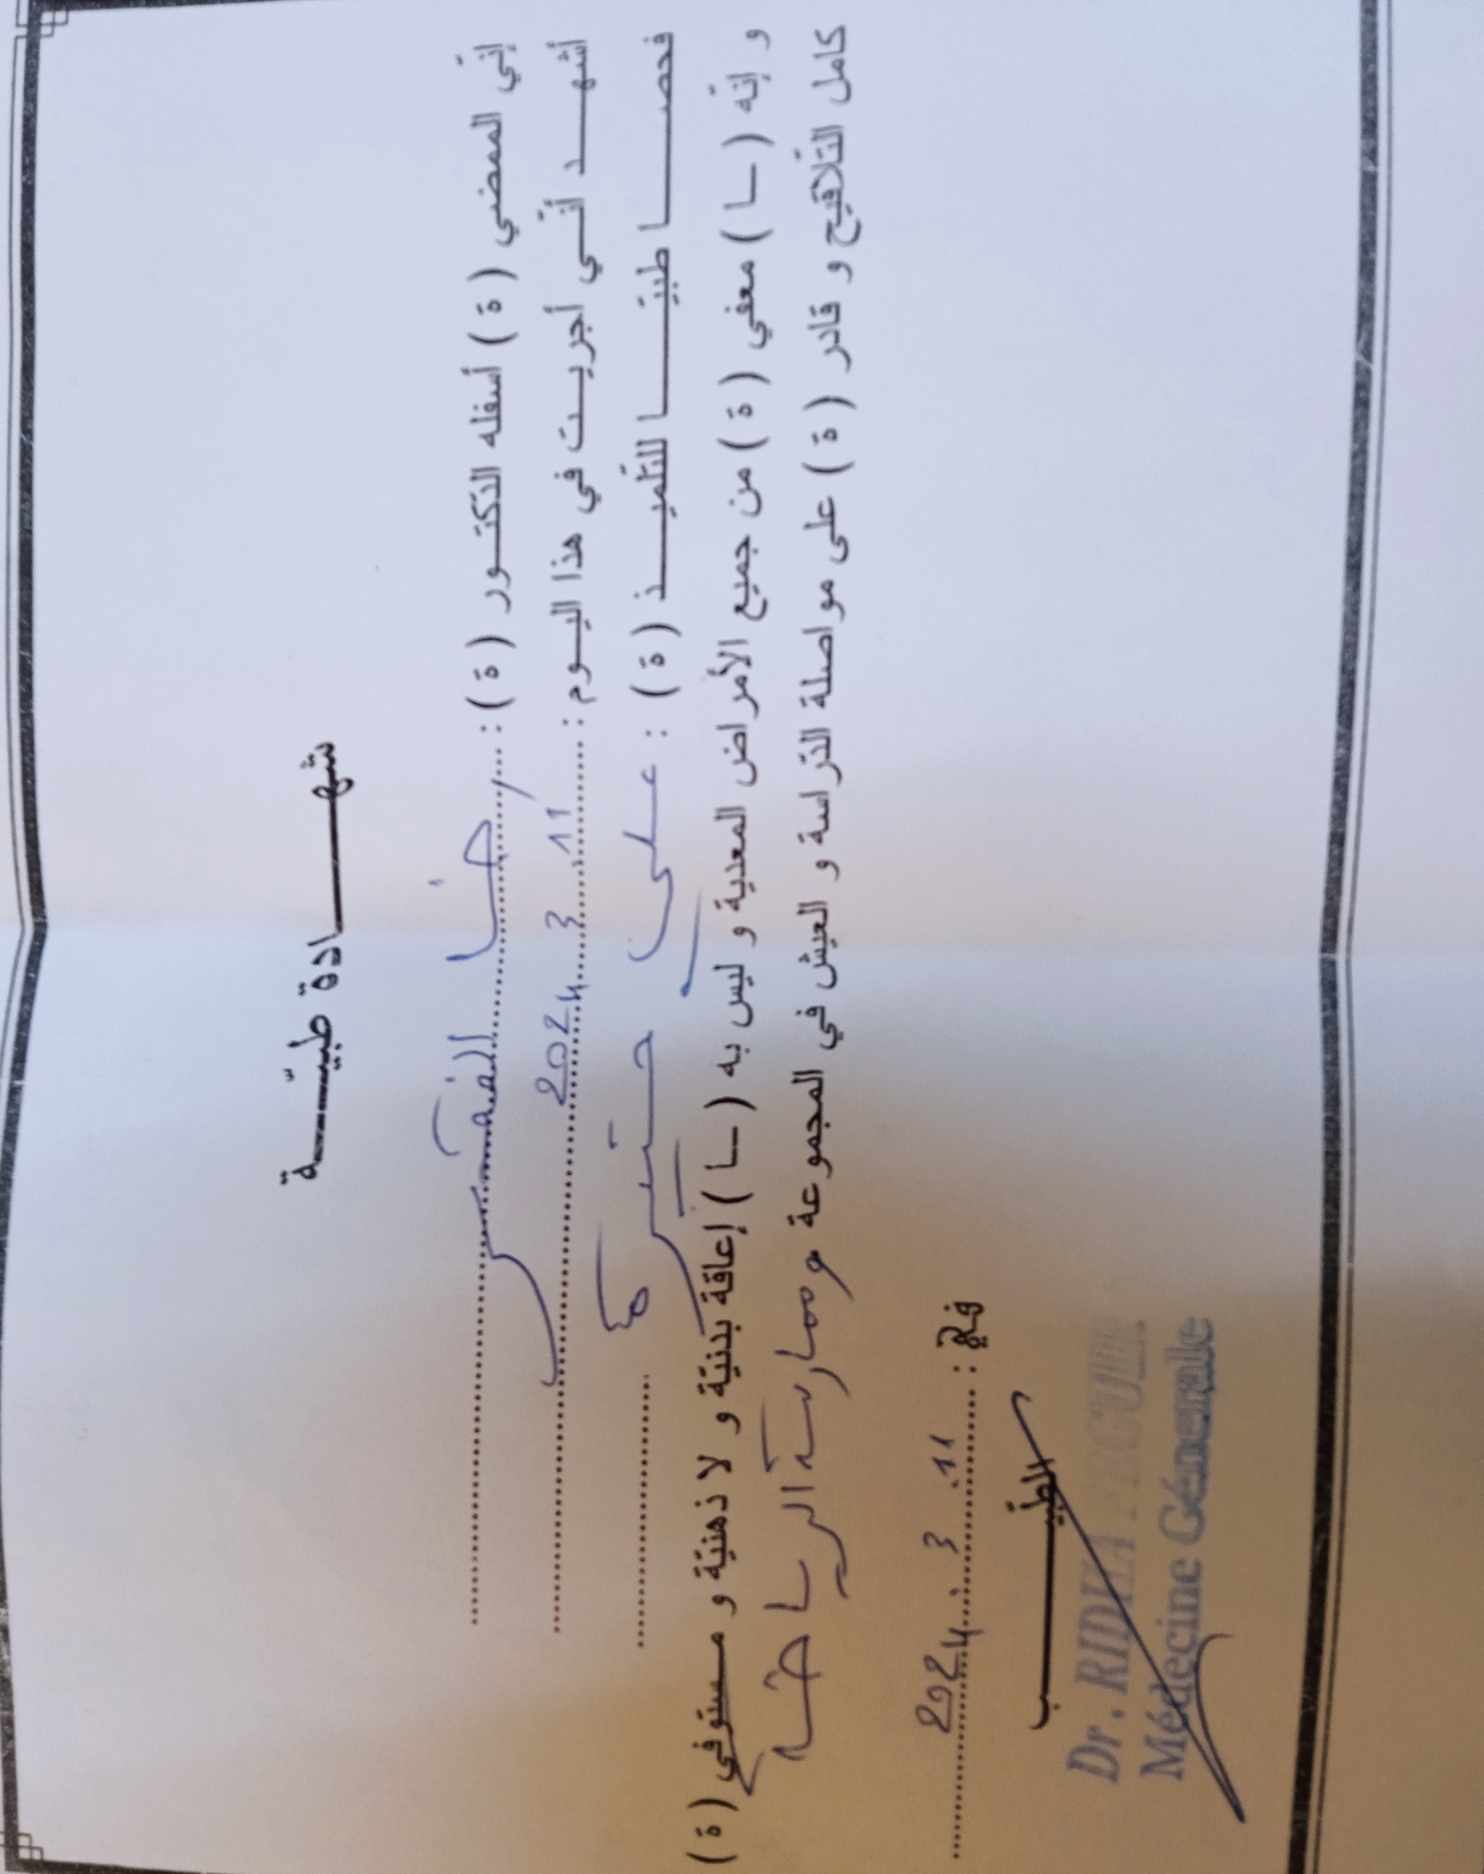 شهادة طبيّة
إنّي الممضي ( ة ) أسفله الدّكتور ( ة ) : رضا الفقي
أشهد أنّي أجريت في هذا اليوم : 11 3 2024
فحصا طبيّا للتّلميذ ( ة ) : علي
و إنّه ( ـا ) معفي ( ة ) من جميع الأمراض المعدية و ليس به ( ـا ) إعاقة بدنيّة و لا ذهنيّة و مستوفي ( ة )
كامل التّلاقيح و قادر ( ة ) على مواصلة الدّراسة و العيش في المجموعة وممارسة الرياضة
في : 11 3 2024
الطبيب
Dr. RIDHA
Médecine Génerale